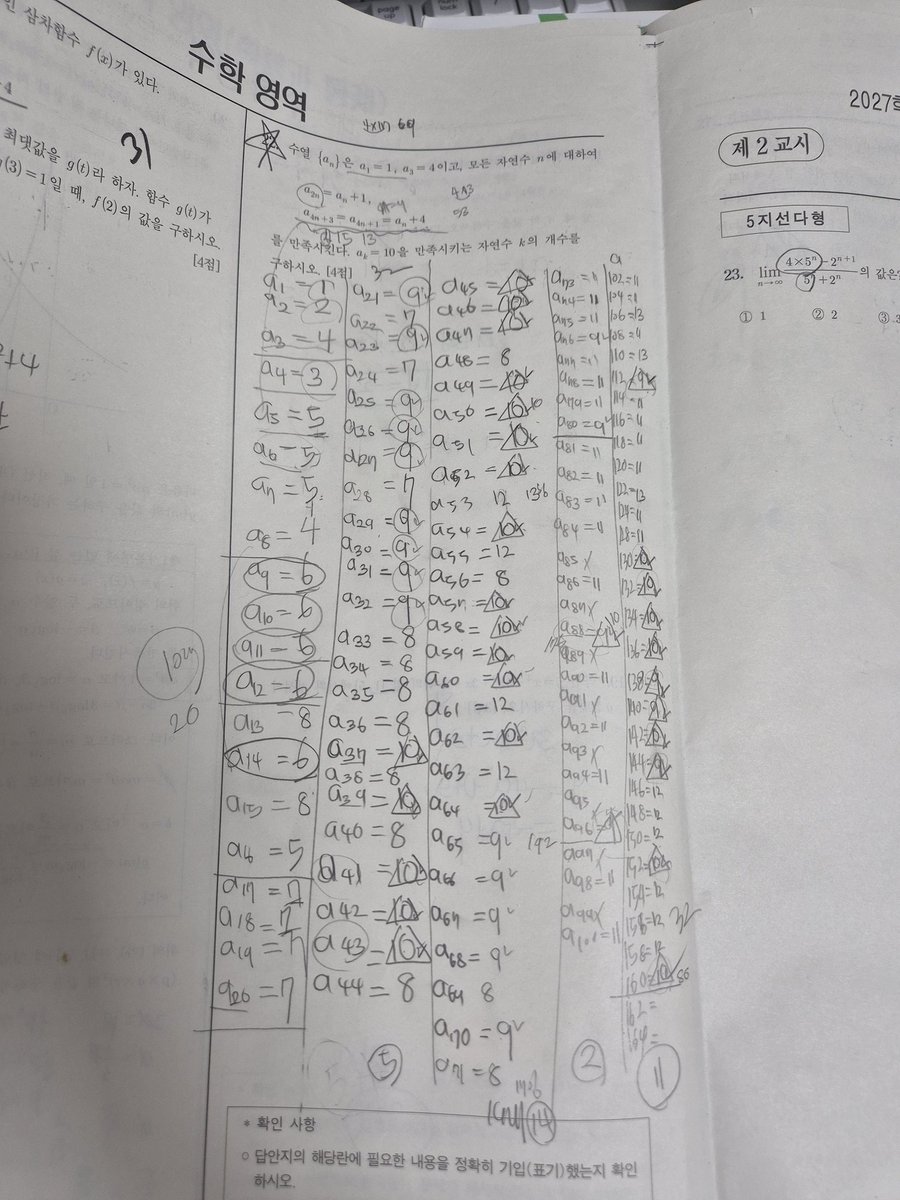 삼차함수 f(x)가 있다.
최댓값을 g(t)라 하자. 함수 g(t)가
(3)=1일 때, f(2)의 값을 구하시오.
[4점]
31
수학 영역
수열 {aₙ}은 a₁=1, a₃=4이고, 모든 자연수 n에 대하여
a₂ₙ=aₙ+1,
a₄ₙ₊₃=a₄ₙ₊₁=aₙ+4
를 만족시킨다. aₖ=10을 만족시키는 자연수 k의 개수를
구하시오. [4점]
a₁=1
a₂=2
a₃=4
a₄=3
a₅=5
a₆=5
a₇=5
a₈=4
a₉=6
a₁₀=6
a₁₁=6
a₁₂=6
a₁₃=8
a₁₄=6
a₁₅=8
a₁₆=5
a₁₇=7
a₁₈=7
a₁₉=7
a₂₀=7
20
a₂₁=9
a₂₂=7
a₂₃=9
a₂₄=7
a₂₅=9
a₂₆=9
a₂₇=9
a₂₈=7
a₂₉=9
a₃₀=9
a₃₁=9
a₃₂=9
a₃₃=8
a₃₄=8
a₃₅=8
a₃₆=8
a₃₇=10
a₃₈=8
a₃₉=10
a₄₀=8
a₄₁=10
a₄₂=10
a₄₃=10
a₄₄=8
5
a₄₅=10
a₄₆=10
a₄₇=10
a₄₈=8
a₄₉=10
a₅₀=10
a₅₁=10
a₅₂=10
a₅₃ 12
a₅₄=10
a₅₅=12
a₅₆=8
a₅₇=10
a₅₈=10
a₅₉=10
a₆₀=10
a₆₁=12
a₆₂=10
a₆₃=12
a₆₄=10
a₆₅=9
a₆₆=9
a₆₇=9
a₆₈=9
a₆₉ 8
a₇₀=9
a₇₁=8
14
a₇₃=11
a₇₄=11
a₇₅=11
a₇₆=9
a₇₇=11
a₇₈=11
a₇₉=11
a₈₀=9
a₈₁=11
a₈₂=11
a₈₃=11
a₈₄=11
a₈₅
a₈₆=11
a₈₇
a₈₈=9
a₈₉
a₉₀=11
a₉₁
a₉₂=11
a₉₃
a₉₄=11
a₉₅
a₉₆=9
a₉₇
a₉₈=11
a₉₉
2
102=11
104=11
106=13
110=13
112=9
114=11
120=11
122=13
124=11
128=11
130=10
132=10
134=10
136=10
138=9
140=9
142=10
144=9
146=12
148=12
150=12
152=10
154=12
156=12
158=12
160=10
162=
164=
11
* 확인 사항
○ 답안지의 해당란에 필요한 내용을 정확히 기입(표기)했는지 확인
하시오.
2027학
제 2 교시
5지선다형
23. lim n→∞ (4×5ⁿ-2ⁿ⁺¹)/(5ⁿ+2ⁿ) 의 값은?
① 1 ② 2 ③ 3